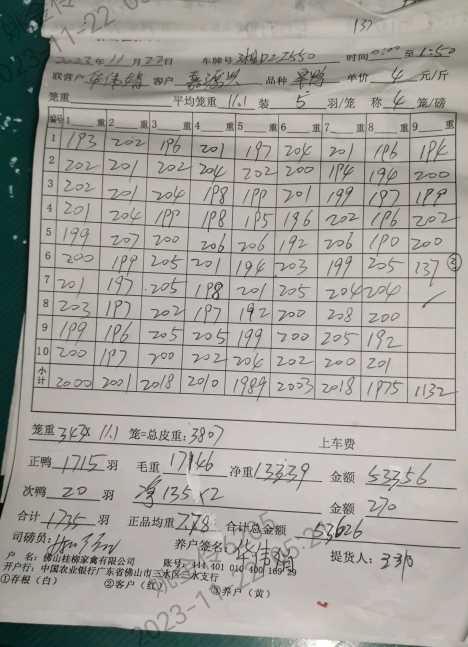 137
2023年11月22日 车牌号 时间 至1:50
欧营户 客户 品种 单价 4 元/斤
笼重 平均笼重 11.1 装 5 羽/笼 称 4 笼/磅
编号 1 重 2 重 3 重 4 重 5 重 6 重 7 重 8 重 9 重
1 193 202 196 201 197 204 201 196 194
2 202 201 202 204 202 200 194 194 200
3 202 201 204 198 199 201 199 197 199
4 201 204 199 198 195 196 202 196 202
5 199 207 200 206 206 192 206 190 200
6 200 199 205 201 194 203 199 205 137 ③
7 201 197 205 198 201 205 204 204
8 203 197 202 197 192 200 208 200
9 199 196 205 205 199 200 205 192
10 200 197 200 202 204 202 200 201
小计 2000 2001 2018 2010 1989 2003 2018 1975 1132
笼重 343 x 11.1 笼=总皮重: 3807 上车费
正鸭 1715 羽 毛重 17146 净重 13339 金额 53356
次鸭 20 羽 净 135 x2 金额 270
合计 1735 羽 正品均重 7.78 合计总金额 53626
司磅员: 养户签名: 提货人:
户 名: 佛山桂柳家禽有限公司 账号:
开户行: 中国农业银行广东省佛山市三水区三水支行
①存根（白） ②客户（红） ③养户（黄）